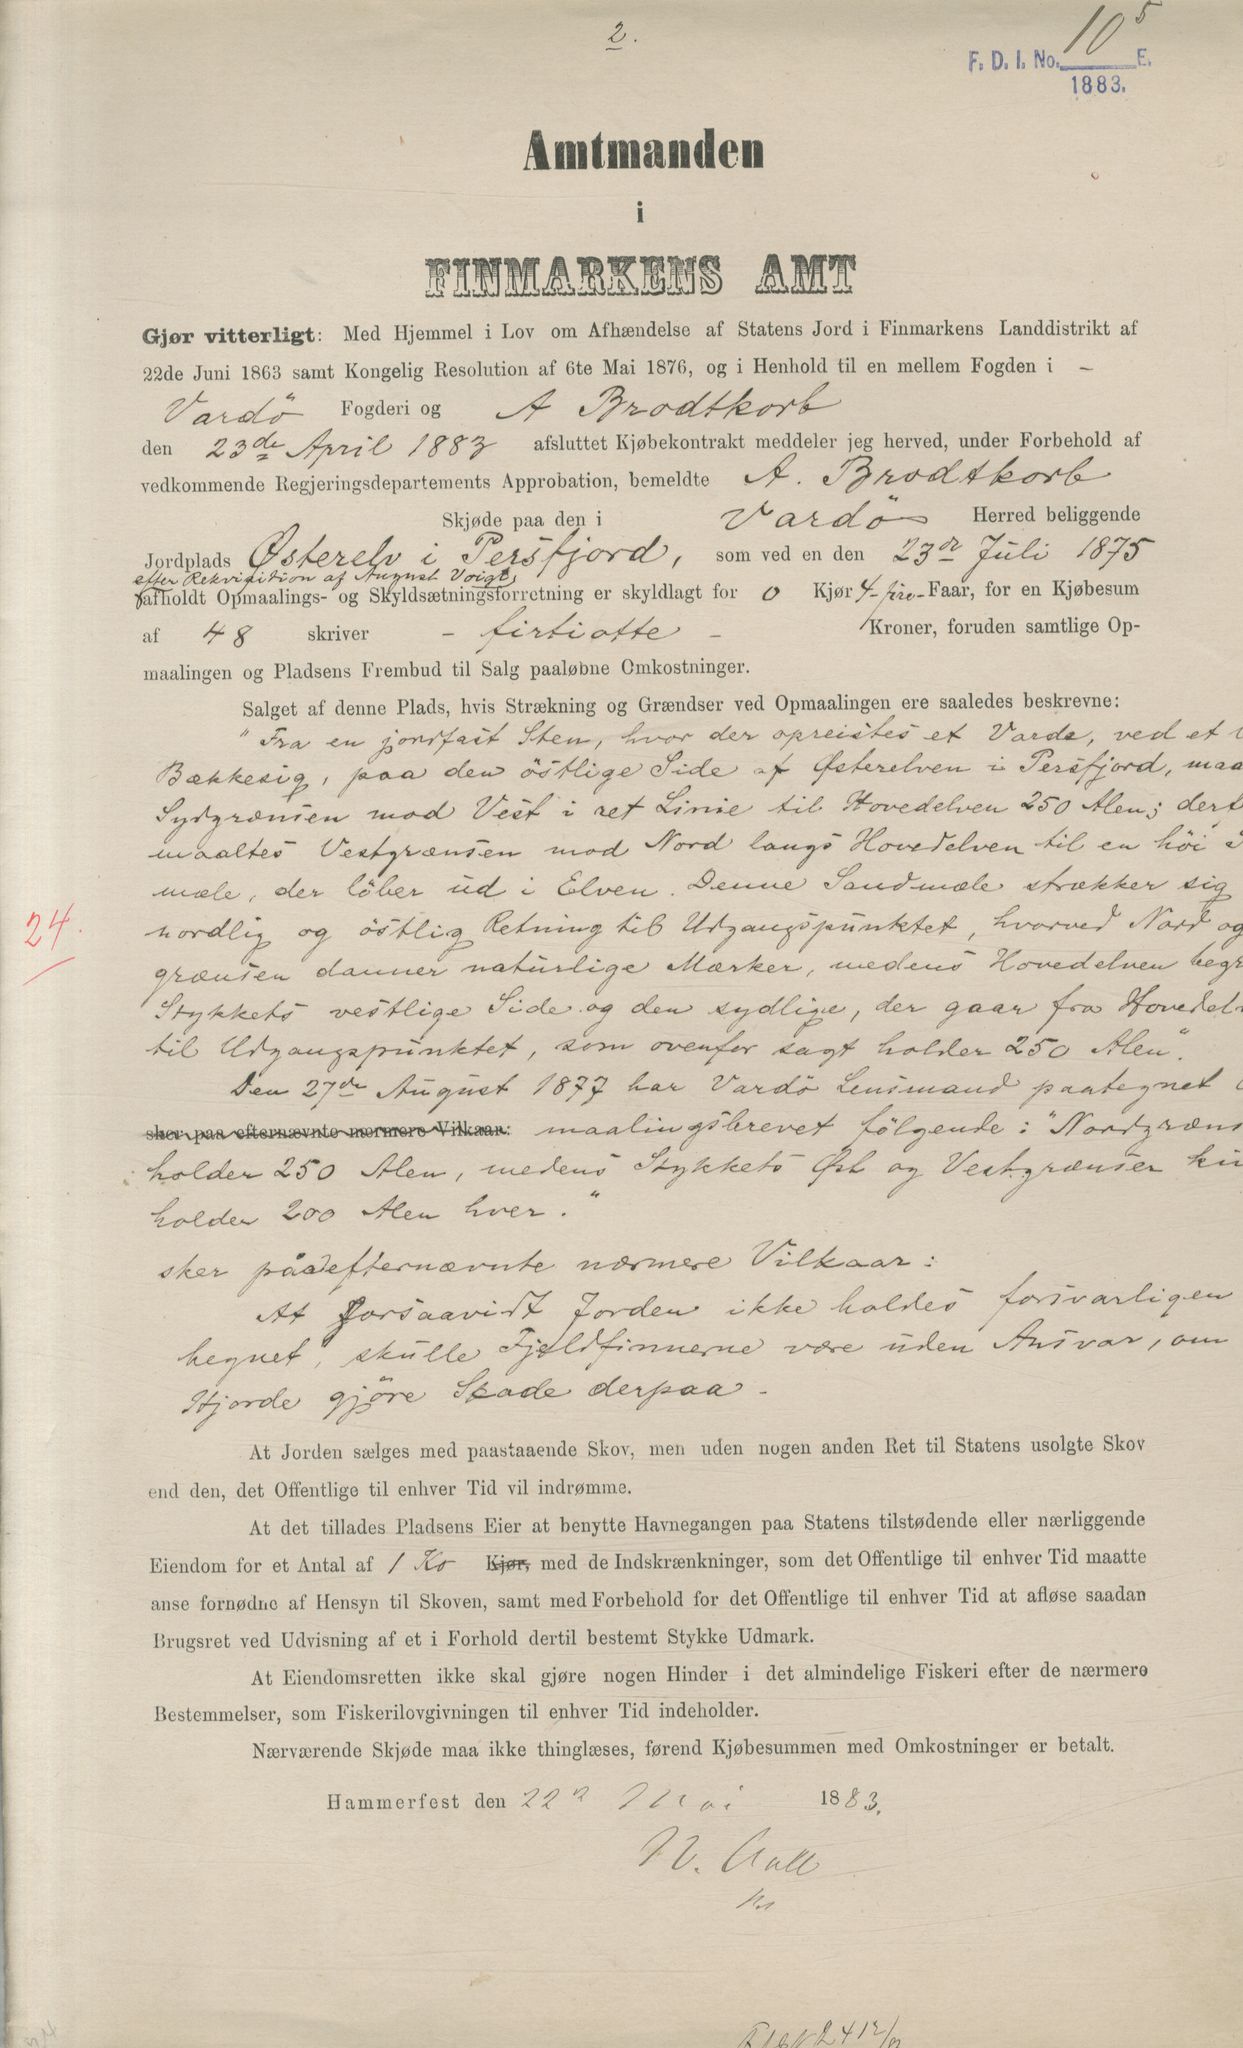 2.
10 5
F. D. I. No. E.
1883.
Amtmanden
i
FINMARKENS AMT
Gjør vitterligt: Med Hjemmel i Lov om Afhændelse af Statens Jord i Finmarkens Landdistrikt af
22de Juni 1863 samt Kongelig Resolution af 6te Mai 1876, og i Henhold til en mellem Fogden i -
Vardö Fogderi og A Brodtkorb
den 23de April 1883 afsluttet Kjøbekontrakt meddeler jeg herved, under Forbehold af
vedkommende Regjeringsdepartements Approbation, bemeldte A. Brodtkorb
Skjøde paa den i Vardö Herred beliggende
Jordplads Østerelv i Persfjord, som ved en den 23de Juli 1875
efter Rekvisition af August Voigt
afholdt Opmaalings- og Skyldsætningsforretning er skyldlagt for 0 Kjør 4-fire-Faar, for en Kjøbesum
af 48 skriver - firtiotte - Kroner, foruden samtlige Op-
maalingen og Pladsens Frembud til Salg paaløbne Omkostninger.
Salget af denne Plads, hvis Strækning og Grændser ved Opmaalingen ere saaledes beskrevne:
"Fra en jordfast Sten, hvor der opreistes et Varde, ved et
Bækkesig, paa den östlige Side af Østerelven i Persfjord, maa
Sydgrænsen mod Vest i ret Linie til Hovedelven 250 Alen; der
maaltes Vestgrænsen mod Nord langs Hovedelven til en höi
mæle, der löber ud i Elven. Denne Sandmæle strækker sig
nordlig og östlig Retning til Udgangspunktet, hvorved Nord og
grænsen danner naturlige Mærker, medens Hovedelven begr
Stykkets vestlige Side og den sydlige, der gaar fra Hovedel
til Udgangspunktet, som ovenfor sagt holder 250 Alen".
Den 27de August 1877 har Vardö Lensmand paategnet
sker paa efternævnte nærmere Vilkaar: maalingsbrevet fölgende: "Nordgræns
holder 250 Alen, medens Stykkets Øst og Vestgrænser
holder 200 Alen hver."
sker påa efternævnte nærmere Vilkaar:
At forsaavidt Jorden ikke holdes forsvarligen
hegnet, skulle Fjeldfinnerne være uden Ansvar, om
Hjorde gjöre Skade derpaa.
24.
At Jorden sælges med paastaaende Skov, men uden nogen anden Ret til Statens usolgte Skov
end den, det Offentlige til enhver Tid vil indrømme.
At det tillades Pladsens Eier at benytte Havnegangen paa Statens tilstødende eller nærliggende
Eiendom for et Antal af 1 Ko Kjør, med de Indskrænkninger, som det Offentlige til enhver Tid maatte
anse fornødne af Hensyn til Skoven, samt med Forbehold for det Offentlige til enhver Tid at afløse saadan
Brugsret ved Udvisning af et i Forhold dertil bestemt Stykke Udmark.
At Eiendomsretten ikke skal gjøre nogen Hinder i det almindelige Fiskeri efter de nærmere
Bestemmelser, som Fiskerilovgivningen til enhver Tid indeholder.
Nærværende Skjøde maa ikke thinglæses, førend Kjøbesummen med Omkostninger er betalt.
Hammerfest den 22 Mai 1883.
N. Aall